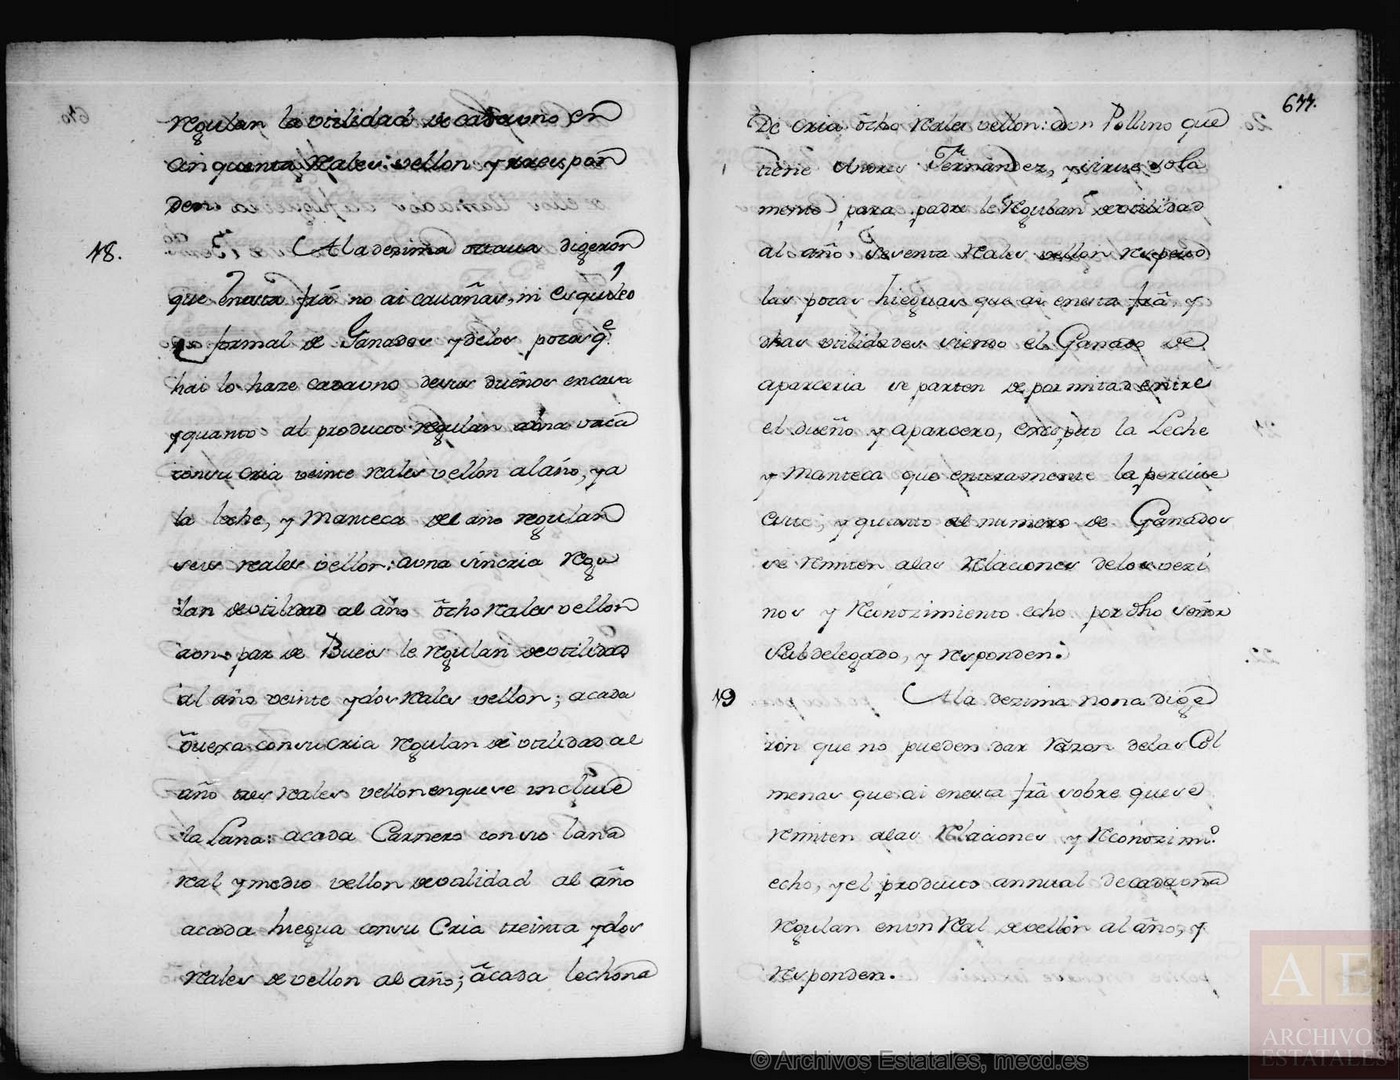 regulan la vtilidad de cada uno en
cinquenta reales vellon y responden
den
18.
A la dezima octaua digeron
que enesta frâ no ai cauañas, ni esquileo
formal de Ganados y delos pocos qe
hai lo haze cada uno desus dueños encasa
y quanto al producto regulan a una vaca
consu cria veinte reales vellon al año, y a
la leche, y Manteca del año regulan
seis reales vellon: a una sincria regu
lan de vtilidad al año ôcho reales vellon
a un par de Bueis le regulan de vtilidad
al año veinte y dos reales vellon; acada
ôuexa consu cria regulan de vtilidad al
año tres reales vellon enque se incluie
la Lana: acada Carnero con su lana
real y medio vellon de validad al año
acada hiegua consu Cria treinta y dos
reales de vellon al año; âcada lechona
633.
De cria ôcho reales vellon: a un Pollino que
tiene Fernandez, y sirue sola
mente para padre le regulan de vtilidad
al año, sesenta reales vellon respecto
las pocas hieguas que ai enesta frâ, y
dhas vtilidades siendo el Ganado de
aparceria se parten de por mitad entre
el dueño y aparcero, excepto la Leche
y Manteca que enteramente la perciue
este, y quanto al numero de Ganados
se remiten alas Relaciones delos vezi
nos y Reconozimiento echo por dho señor
Subdelegado, y responden.
19
A la dezima nona dige
ron que no pueden dar razon delas Col
menas que ai enesta frâ sobre que se
remiten alas Relaciones y Reconozimto
echo, y el producto annual de cada una
regulan en vn Real de vellon al año, y
responden.
AE
ARCHIVOS
ESTATALES
© Archivos Estatales, mecd.es